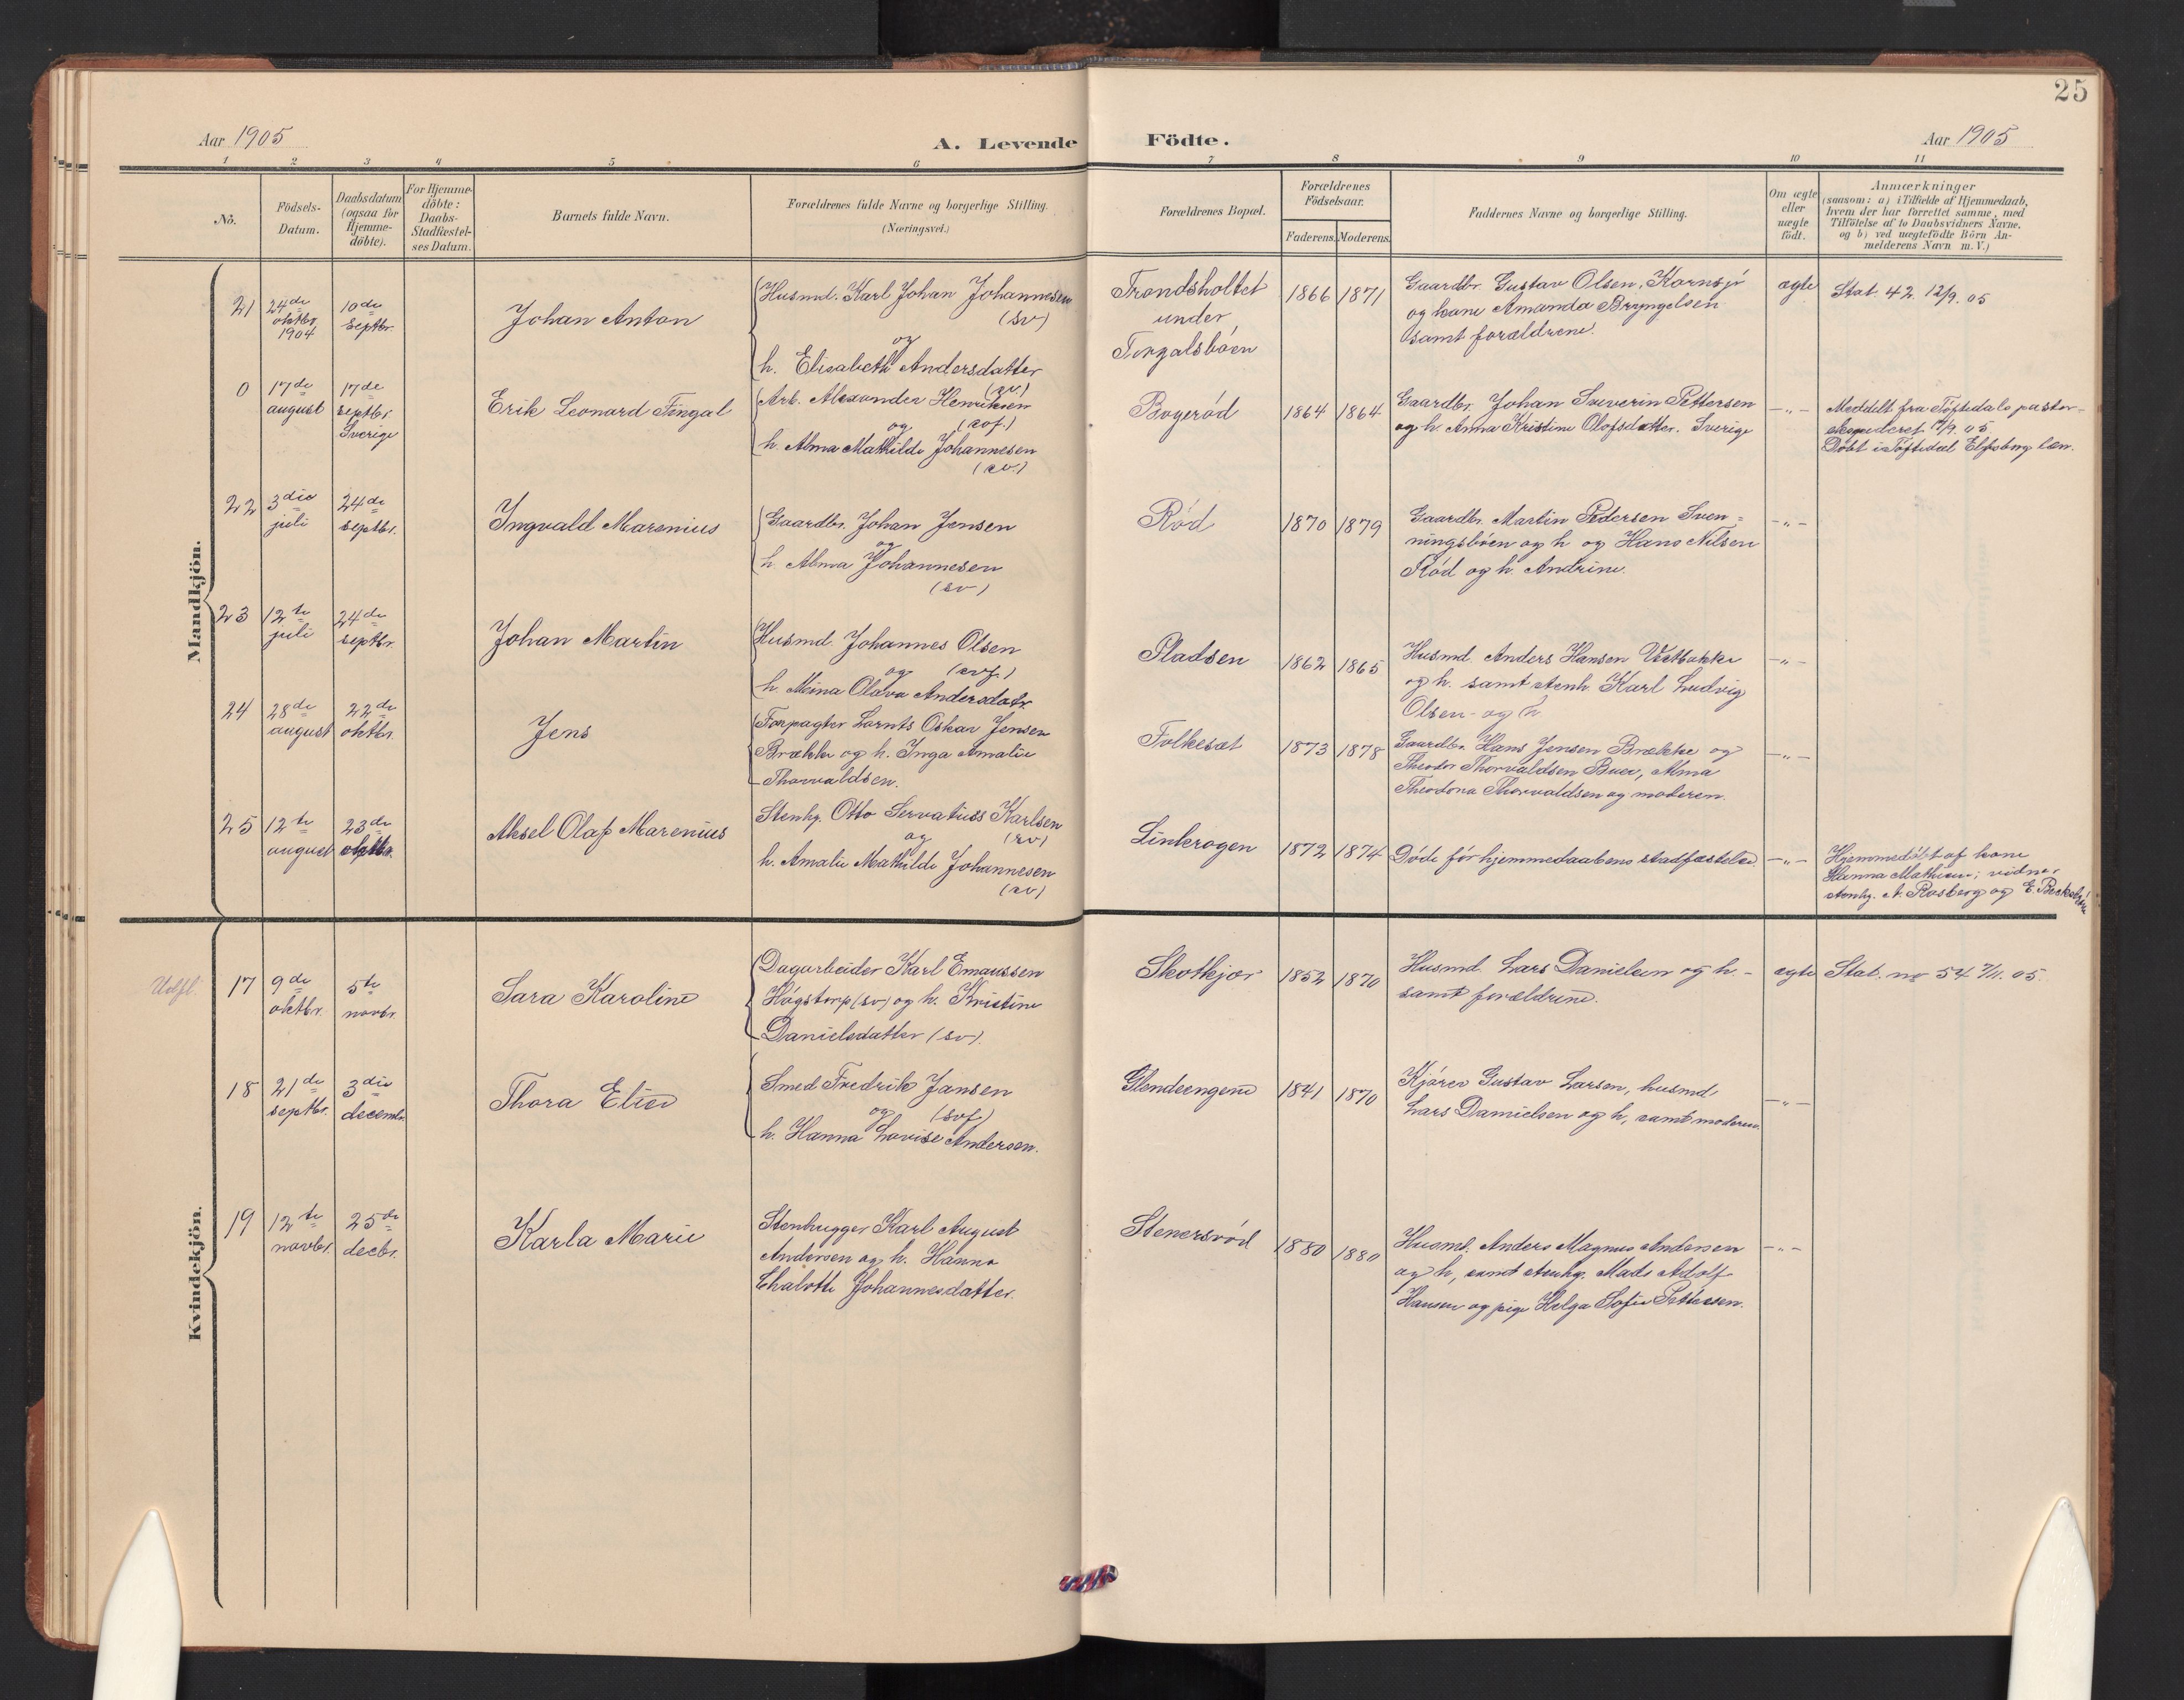 25
Aar 1905
A. Levende Födte.
Aar 1905
1 2 3 4 5 6 7 8 9 10 11
Nö.
Födsels-Datum.
Daabsdatum (ogsaa for Hjemme-döbte).
For Hjemme-döbte: Daabs-Stadfæstel-ses Datum.
Barnets fulde Navn.
Forældrenes fulde Navne og borgerlige Stilling. (Næringsvei.)
Forældrenes Bopæl.
Forældrenes Födselsaar.
Faderens. Moderens.
Faddernes Navne og borgerlige Stilling.
Om ægte eller uægte födt.
Anmærkninger
(saasom: a) i Tilfælde af Hjemmedaab,
hvem der har forrettet samme, med
Tilföielse af to Daabsvidners Navne,
og b) ved uægtefödte Börn An-
melderens Navn m. V.)
Mandkjön.
21 24de oktbr. 1904
10de septbr.
Johan Anton
Husmd. Karl Johan Johannesen
(sv)
og
h. Elisabeth Andersdatter
(sv.)
Trondsholtet
under
Torgalsbøen
1866 1871
Gaardbr. Gustav Olsen, Kornsjø
og kone Amanda Bryngelsen
samt forældrene.
ægte
Stat. 42. 12/9. 05
0 17de august
17de septbr. Sverige
Erik Leonard Fingal
Arb. Alexander Henriksen
og (svf.)
h. Alma Mathilde Johannesen
(sv.)
Bogerød
1864 1864
Gaardbr. Johan Severin Pettersen
og h. Anna Kristine Olofsdatter. Sverige
—„—
Meddelt fra Töftedals pastor-
Döbt i Töftedal Elfsborg læn.
22 3die juli
24de septbr.
Ingvald Marenius
Gaardbr. Johan Jensen
og
h. Alma Johannesen
(sv)
Rød
1870 1879
Gaardbr. Martin Pedersen Sven-
ningsbøen og h og Hans Nilsen
Rød og h. Andrine.
—„—
23 12te juli
24de septbr.
Johan Martin
Husmd. Johannes Olsen
og (svf.)
h. Meina Olava Andersdatr
Pladsen
1862 1865
Husmd. Anders Hansen Vestbakke
og h. samt stenh. Karl Ludvig
Olsen og h
—„—
24 28de august
22de oktbr.
Jens
Forpagter Lornts Oskar Jensen
Brække og h. Inga Amalie
Thorvaldsen.
Folkesæt
1873 1878
Gaardbr. Hans Jensen Brække og
Theodor Thorvaldsen Buer, Alma
Theodora Thorvaldsen og moderen.
—„—
25 12te august
23de
Aksel Olaf Marenius
Stenhg. Otto Servatius Karlsen
og (sv)
h. Amalie Mathilde Johannesen
(sv)
Linkrogen
1872 1874
Døde før hjemmedaabens stadfæstelse
—„—
Hjemmedøbt af kone
Hanna Mathisen; vidner
stenhg. A. Rosberg og E.
Kvindekjön.
Udfl.
17 9de oktbr.
5te novbr.
Sara Karoline
Dagarbeider Karl Emaussen
Høgstorp (sv) og h. Kristine
Danielsdatter (sv).
Skotkjær
1852 1870
Husmd. Lars Danielsen og h. -
samt forældrene.
ægte
Stat. no 54 7/11. 05.
18 21de septbr.
3die decembr.
Thora Elise
Smed Fredrik Jansen
og (svf)
h. Hanna Lovise Andersen.
Glendeengene
1841 1870
Kjører Gustav Larsen, husmd.
Lars Danielsen og h, samt moderen.
—„—
19 12te novbr.
25de decbr.
Karla Marie
Stenhugger Karl August
Andersen og h. Hanna
Chalotte Johannesdatter.
Stenersrød
1880 1880
Husmd. Anders Magnus Andersen
og h, samt stenhg. Mads Adolf
Hansen og pige Helga Sofie Pettersen.
—„—